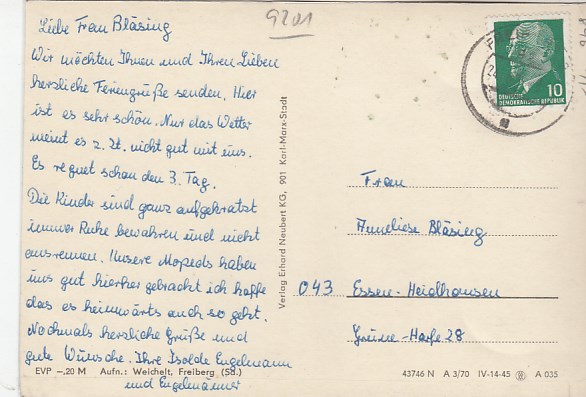 9201
Liebe Frau Bläsing
Wir möchten Ihnen und Ihren Lieben
herzliche Feriengrüße senden. Hier
ist es sehr schön. Nur das Wetter
meint es z. Zt. nicht gut mit uns.
Es regnet schon den 3. Tag.
Die Kinder sind ganz aufgekratzt
immer Ruhe bewahren und nicht
ausrennen. Unsere Mopeds haben
uns gut hierher gebracht ich hoffe
das es heimwärts auch so geht.
Nochmals herzliche Grüße und
gute Wünsche. Ihre Isolde Engelmann
und Engelmänner
EVP –,20 M Aufn.: Weichelt, Freiberg (Sa.)
Verlag Erhard Neubert KG, 901 Karl-Marx-Stadt
10
DEUTSCHE
DEMOKRATISCHE REPUBLIK
Frau
Anneliese Bläsing
043 Essen-Heidhausen
Grüne-Harfe 28
43746 N A 3/70 IV-14-45 A 035